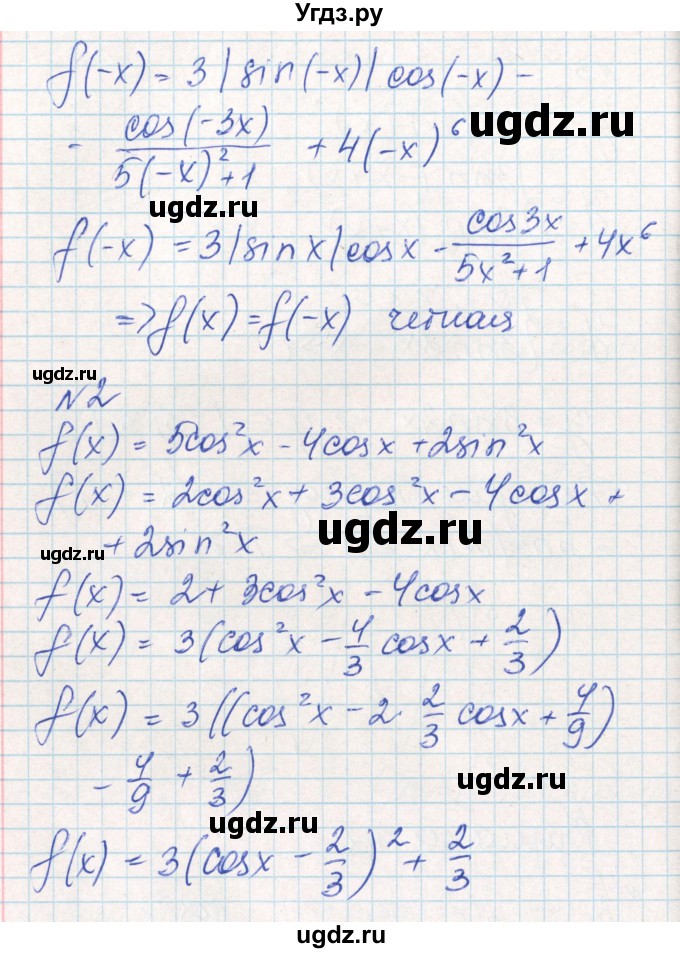 Угдз.ру
f(-x) = 3|sin(-x)|cos(-x) -
- cos(-3x)/(5(-x)²+1) + 4(-x)⁶
ugdz.ru
ugdz.ru
f(-x) = 3|sinx|cosx - cos3x/(5x²+1) + 4x⁶
=> f(x) = f(-x) четная
ugdz.ru
N2
f(x) = 5cos²x - 4cosx + 2sin²x
f(x) = 2cos²x + 3cos²x - 4cosx +
ugdz.ru
+ 2sin²x
ugdz.ru
f(x) = 2 + 3cos²x - 4cosx
f(x) = 3(cos²x - 4/3 cosx + 2/3)
f(x) = 3((cos²x - 2· 2/3 cosx + 4/9)
- 4/9 + 2/3)
ugdz.ru
ugdz.ru
f(x) = 3(cosx - 2/3)² + 2/3
ugdz.ru